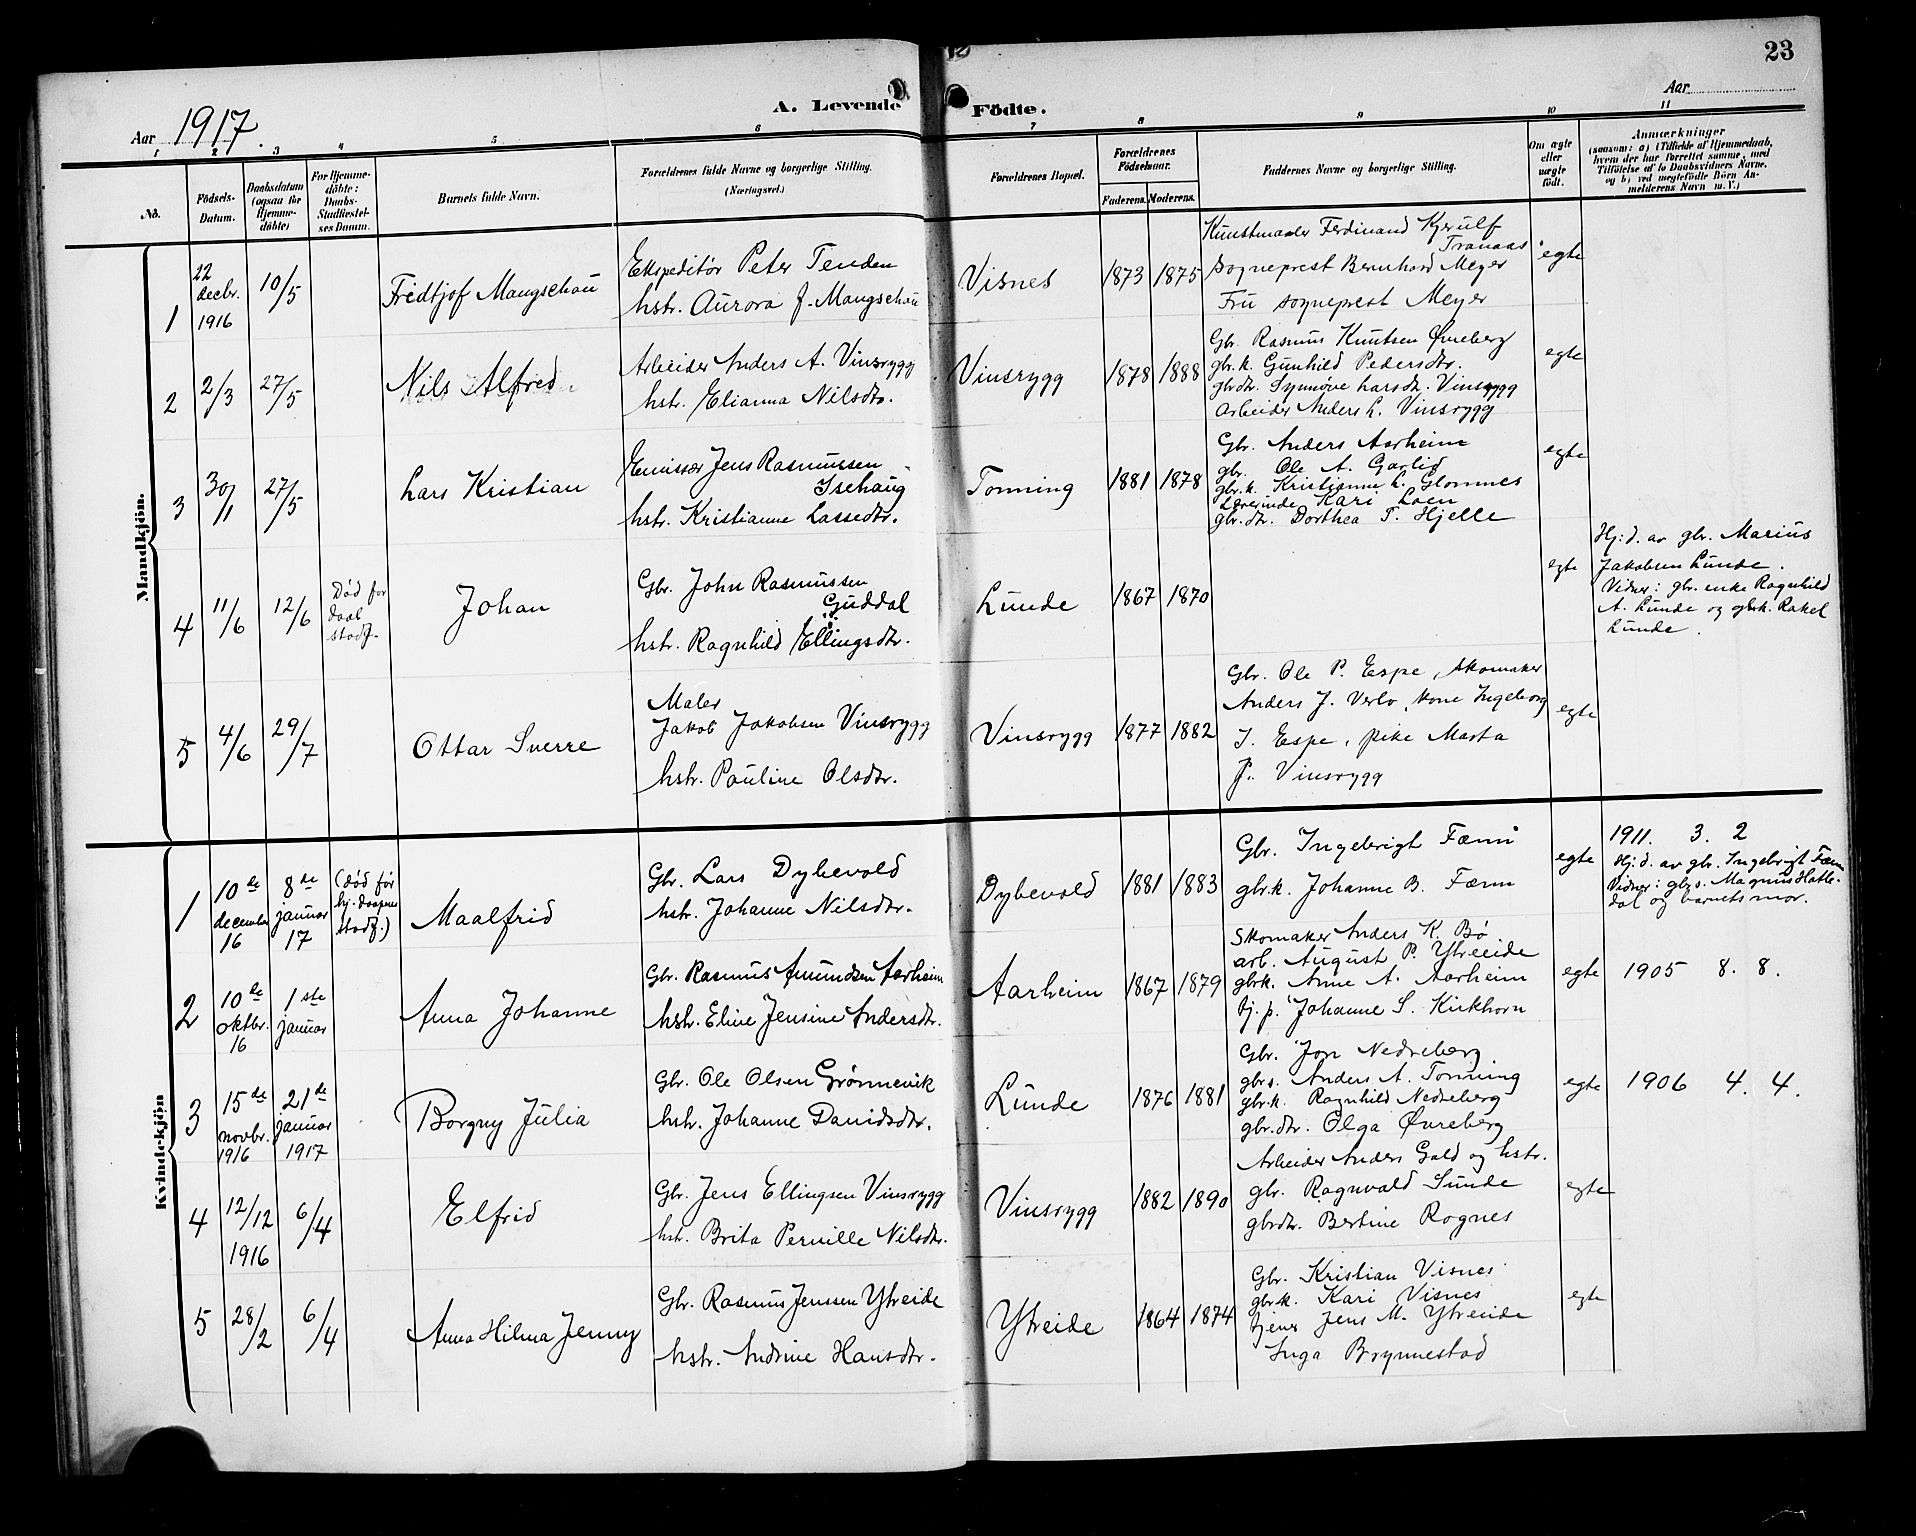 23
A. Levende Födte.
Aar 1917.
Aar
1 2 3 4 5 6 7 8 9 10 11
No.
Födsels-Datum.
Daabsdatum (ogsaa for Hjemme-döbte)
For Hjemme-döbte: Daabs-Stadfæstel-ses Datum.
Barnets fulde Navn.
Forældrenes fulde Navne og borgerlige Stilling. (Næringsvei.)
Forældrenes Bopæl.
Forældrenes Födselsaar.
Faderens. Moderens.
Faddernes Navne og borgerlige Stilling.
Om ægte eller uægte födt.
Anmærkninger
(saasom: a) i Tilfælde af Hjemmedaab,
hvem der har forrettet samme, med
Tilföielse af to Daabsvidners Navne,
og b) ved uægtefödte Börn An-
melderens Navn m. V.)
Mandkjön.
1
22 decbr. 1916
10/5
Fridtjof Maugschau
Ekspeditør Peter Tenden
hstr. Aurora f. Maugschau
Visnes
1873 1875
Kunstmaler Ferdinand Kjerulf
Tranaas
Sogneprest Bernhard Meyer
Fru sogneprest Meyer
egte
2
2/3
27/5
Nils Alfred
Arbeider Anders A. Vinsrygg
hstr. Elianna Nilsdtr.
Vinsrygg
1878 1888
Gbr. Rasmus Knutsen Øvreberg
gbr.k. Gunhild Pedersdtr.
gbrdtr. Synnøve Larsdt. Vinsrygg
Arbeider Anders L. Vinsrygg
egte
3
30/1
27/5
Lars Kristian
Emissær Jens Rasmussen
Isehaug
hstr. Kristianne Lassedtr.
Tonning
1881 1878
Gbr. Anders Aarheim
gbr. Ole A. Garlid
gbr.k. Kristianne L. Glomnes
Lærerinde Kari Loen
gbr.dtr. Dorthea T. Hjelle
egte
4
11/6
12/6
Død før
daab
stadf.
Johan
Gbr. John Rasmussen
Guddal
hstr. Ragnhild Ellingsdtr.
Lunde
1867 1870
egte
Hj.d. av gbr. Marius
Jakobsen Lunde.
Vidner: gbr. enke Ragnhild
A. Lunde og gbrk. Rakel
Lunde.
5
4/6
29/7
Ottar Sverre
Maler
Jakob Jakobsen Vinsrygg
hstr. Pauline Olsdtr.
Vinsrygg
1877 1882
Gbr. Ole P. Espe, skomaker
Anders J. Verlo, kone Ingeborg
J. Espe, pike Marta
J. Vinsrygg
egte
Kvindekjön
1
10de december 16
8de januar 17
(død før
hj. daapens
stadf.)
Maalfrid
Gbr. Lars Dybevold
hstr. Johanne Nilsdtr.
Dybevold
1881 1883
Gbr. Ingebrigt Færn
gbr.k. Johanne B. Færn
egte
1911. 3. 2
Hj.d. av gbr. Ingebrigt Færn
Vidner: gbrs. Magnus Hatle-
dal og barnets mor.
2
10de oktbr. 16
1ste januar
Anna Johanne
Gbr. Rasmus Amundsen Aarheim
hstr. Eline Jensine Andersdtr.
Aarheim
1867 1879
Skomaker Anders K. Bø
arb. August P. Ytreeide
gbrk. Anne A. Aarheim
tj.p. Johanne S. Kirkhorn
egte
1905 8. 8.
3
15de novbr. 1916
21de januar 1917
Borgny Julia
Gbr. Ole Olsen Grønnevik
hstr. Johanne Davidsdtr.
Lunde
1876 1881
Gbr. Jon Nedreberg.
gbrs. Anders A. Tonning
gbr.k. Ragnhild Nedreberg
gbr.dtr. Olga Øvreberg
egte
1906 4. 4.
4
12/12 1916
6/4
Elfrid
Gbr. Jens Ellingsen Vinsrygg
hstr. Brita Pernille Nilsdtr.
Vinsrygg
1882 1890
Arbeider Anders Gald og hstr.
gbr. Ragnvald Sunde
gbrdtr. Bertine Rognes
egte
5
28/2
6/4
Anna Hilma Jenny
Gbr. Rasmus Jenssen Ytreide
hstr. Andrine Hansdtr.
Ytreide
1864 1874
Gbr. Kristian Visnes
gbr.k. Kari Visnes
tjener Jens M. Ytreeide
Inga Brynnestad
egte